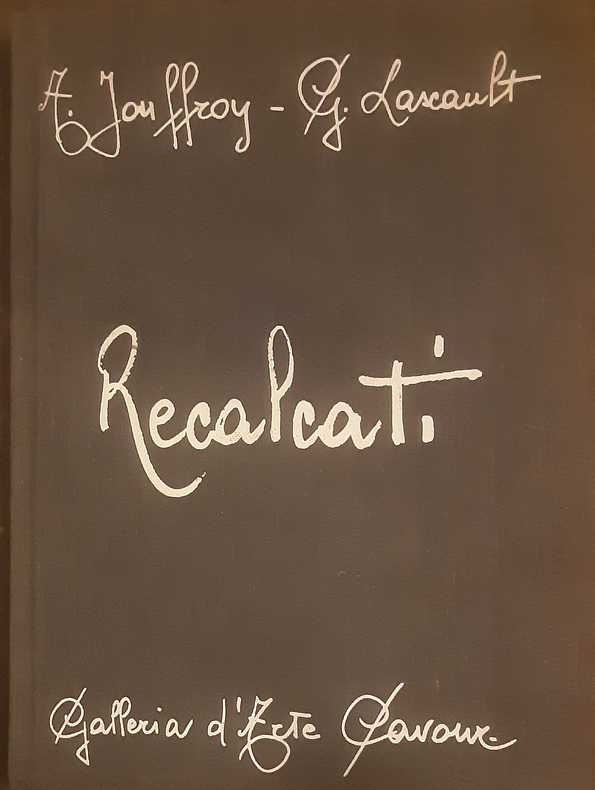 A. Jouffroy - G. Lascault
Recalcati
Galleria d'Arte Cavour.